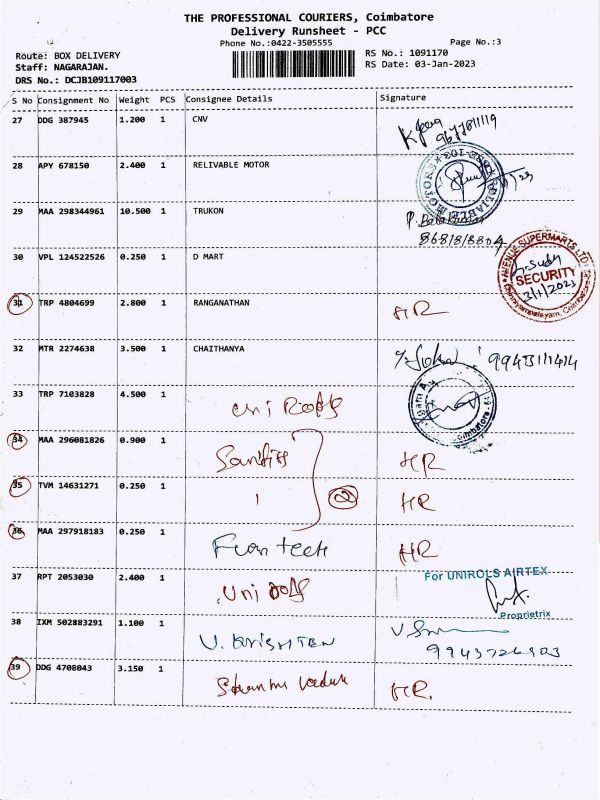 THE PROFESSIONAL COURIERS, Coimbatore
Delivery Runsheet - PCC
Phone No.:0422-3505555
Page No.:3
Route: BOX DELIVERY
RS No.: 1091170
Staff: NAGARAJAN.
RS Date: 03-Jan-2023
DRS No.: DCJB109117003
S No Consignment No Weight PCS Consignee Details Signature
27 DDG 387945 1.200 1 CNV
28 APY 678150 2.400 1 RELIVABLE MOTOR
29 MAA 298344961 10.500 1 TRUKON
30 VPL 124522526 0.250 1 D MART
AVENUE SUPERMARTS LTD
SECURITY
3/1/2023
31 TRP 4804699 2.800 1 RANGANATHAN HR
32 MTR 2274638 3.500 1 CHAITHANYA
33 TRP 7103828 4.500 1
34 MAA 296081826 0.900 1 HR
35 TVM 14631271 0.250 1 2 HR
36 MAA 297918183 0.250 1 HR
37 RPT 2053030 2.400 1 For UNIROLS AIRTEX
Proprietrix
38 IXM 502883291 1.100 1
39 DDG 4708043 3.150 1 HR.